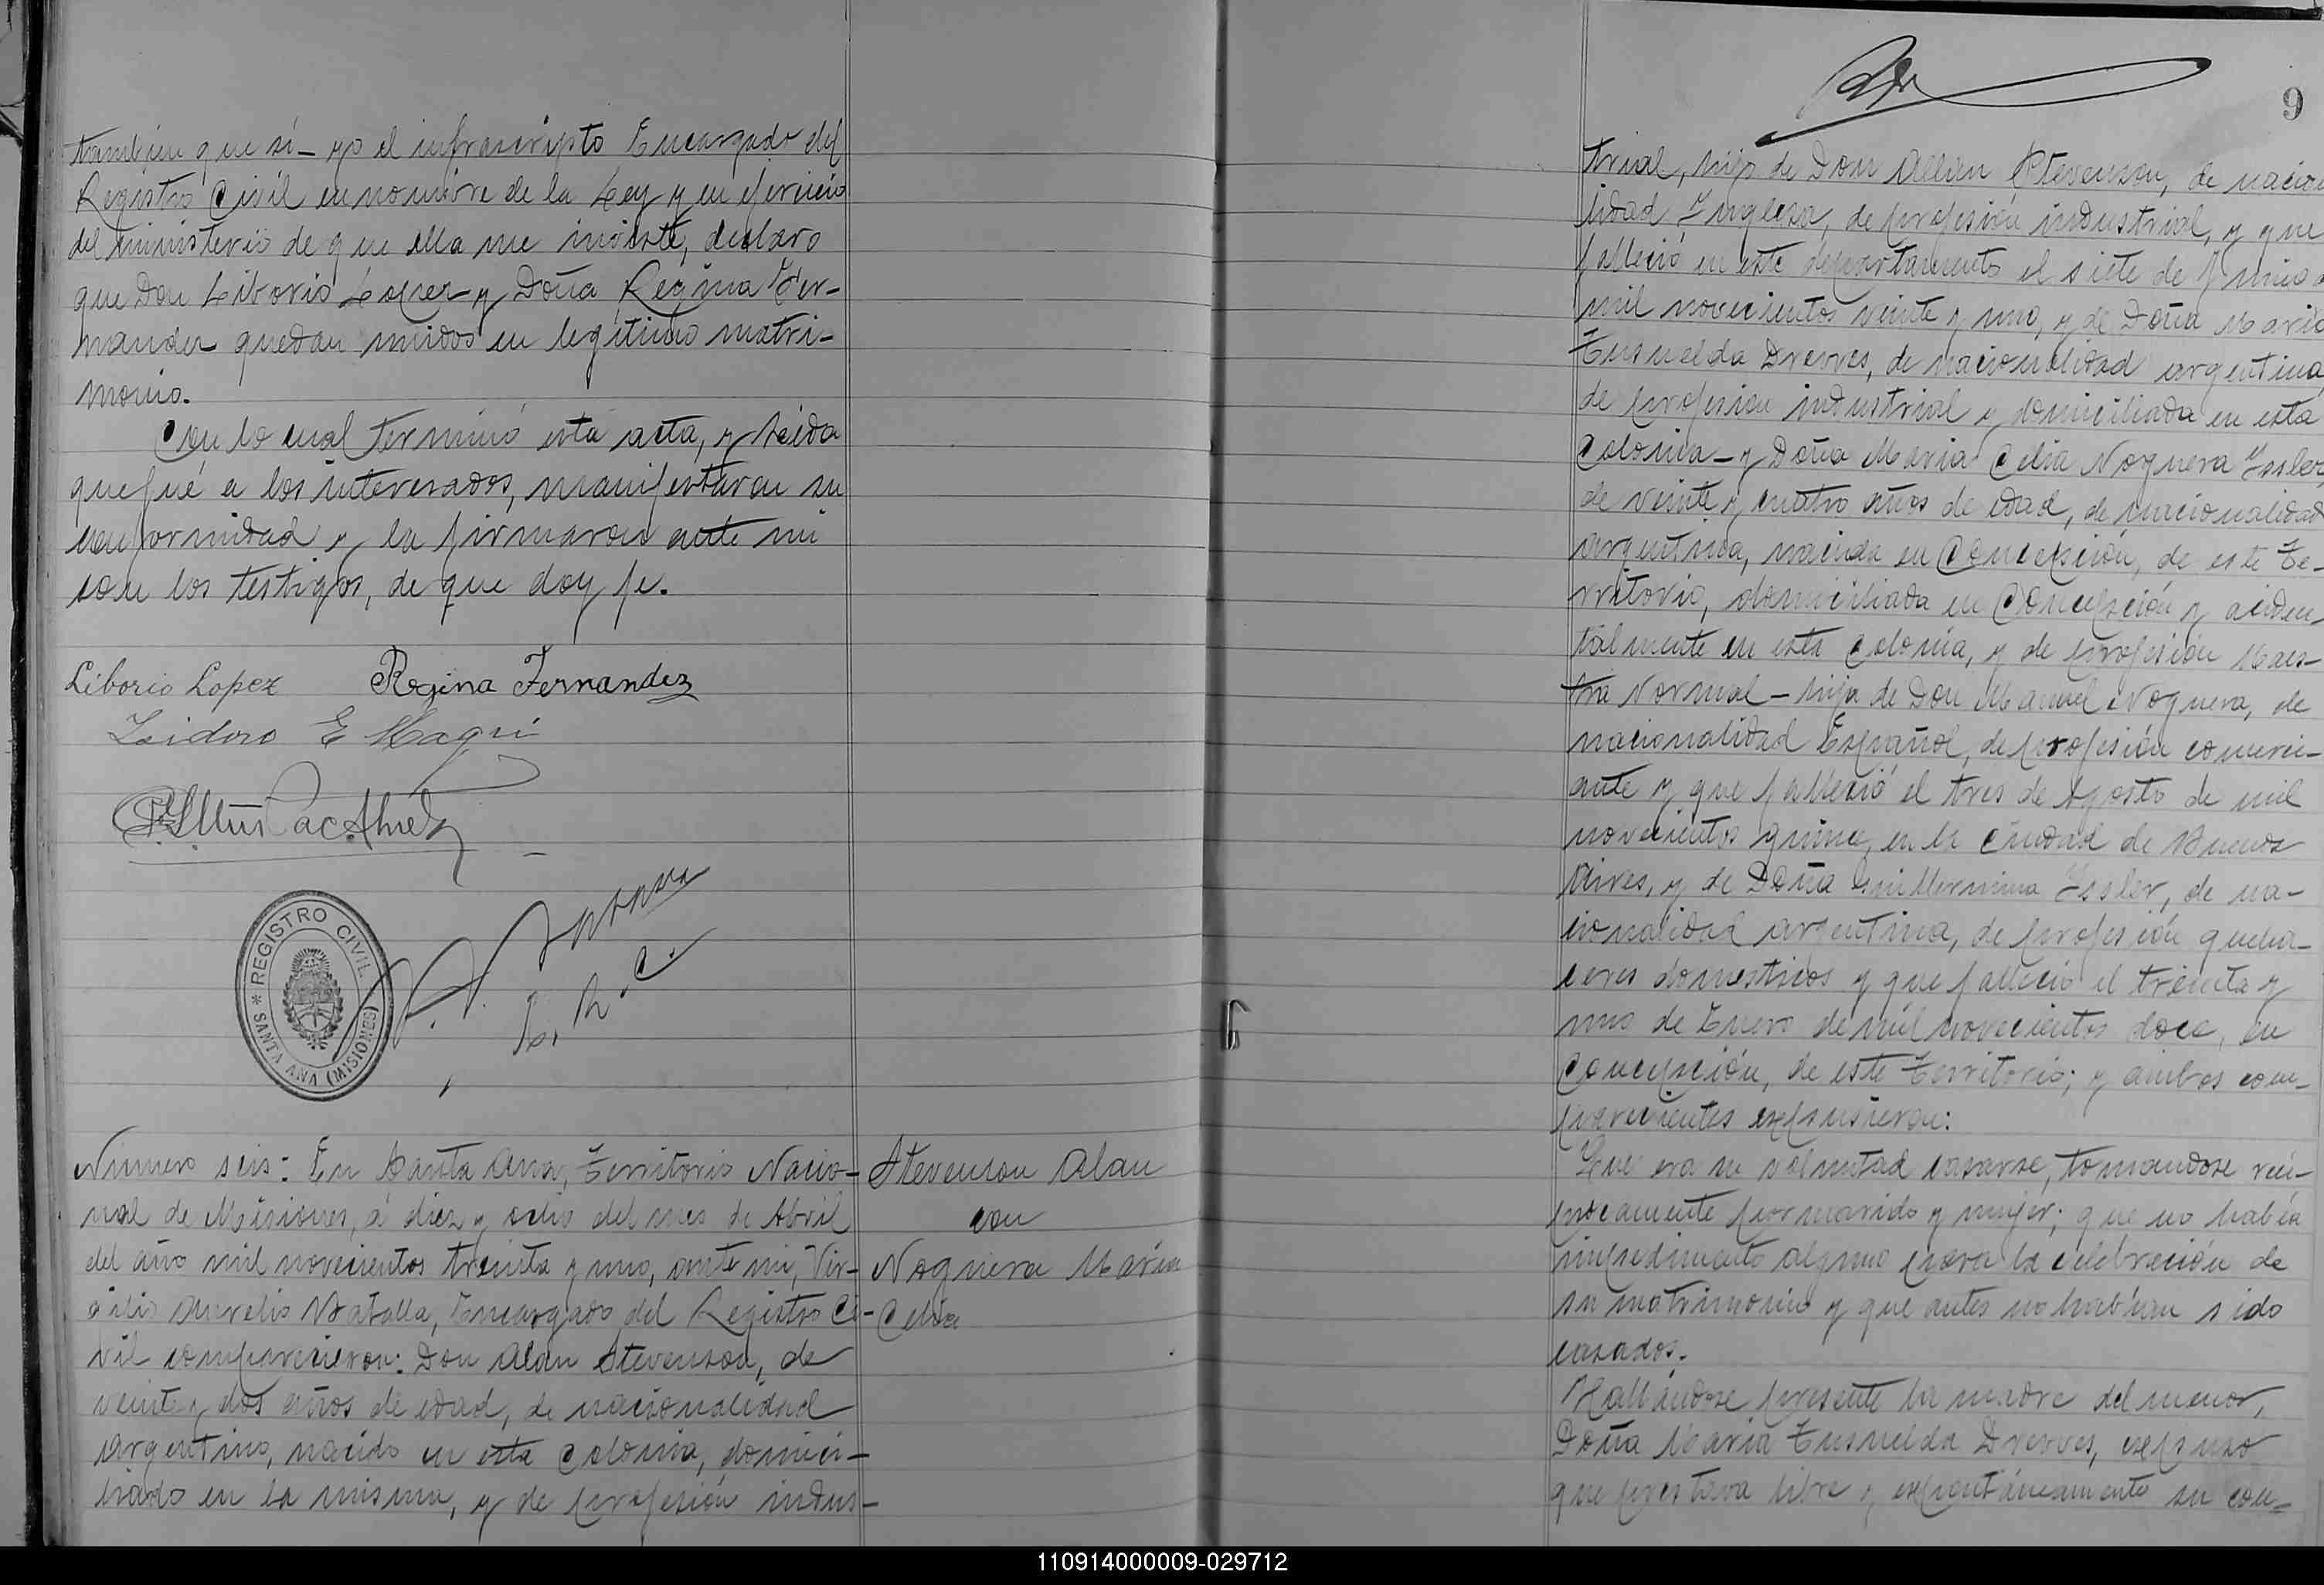 también que sí - yo el infrascripto Encargado del
Registro Civil en nombre de la Ley y en ejercicio
del ministerio de que ella me inviste, declaro
que Don Liborio Lopez y Doña Regina Fer-
nandez quedan unidos en legítimo matri-
monio.
Con lo cual terminó esta acta, y leida
que fué a los interesados, manifestaron su
conformidad y la firmaron ante mi
con los testigos, de que doy fe.
Liborio Lopez Regina Fernandez
Isidoro E
REGISTRO CIVIL
* SANTA ANA (MISIONES)
Numero seis: En Santa Ana, Territorio Nacio-
nal de Misiones, á diez y ocho del mes de Abril
del año mil novecientos treinta y uno, ante mi, Vir-
gilio Aurelio Batalla, Encargado del Registro Ci-
vil comparecieron: Don Alan Stevenson, de
veinte y dos años de edad, de nacionalidad
argentino, nacido en esta Colonia, domici-
liado en la misma, y de profesión indus-
Stevenson Alan
con
Noguera Maria
Celia
9
trial, hijo de Don Allan Stevenson, de nacion
lidad Inglesa, de profesión industrial, y que
falleció en este departamento el siete de Junio d
mil novecientos veinte y uno, y de Doña Maria
Tusnelda Drewes, de nacionalidad argentina
de profesión industrial y domiciliada en esta
Colonia - y Doña Maria Celia Noguera Issler,
de veinte y cuatro años de edad, de nacionalidad
argentina, nacida en Concepción, de este Te-
rritorio, domiciliada en Concepción y acciden-
talmente en esta Colonia, y de profesión Maes-
tra Normal - hija de Don Manuel Noguera, de
nacionalidad Español, de profesión comerci-
ante y que falleció el tres de Agosto de mil
novecientos quince, en la Ciudad de Buenos
Aires, y de Doña Guillermina Issler, de na-
cionalidad argentina, de profesión queha-
ceres domesticos y que falleció el treinta y
uno de Enero de mil novecientos doce, en
Concepción, de este Territorio; y ambos com-
parecientes expusieron:
Que era su voluntad casarse, tomandose recí-
procamente por marido y mujer; que no había
impedimento alguno para la celebración de
su matrimonio y que antes no habían sido
casados.
Hallándose presente la madre del menor,
Doña Maria Tusnelda Drewes, expuso
que prestava libre y espontáneamente su con-
110914000009-029712